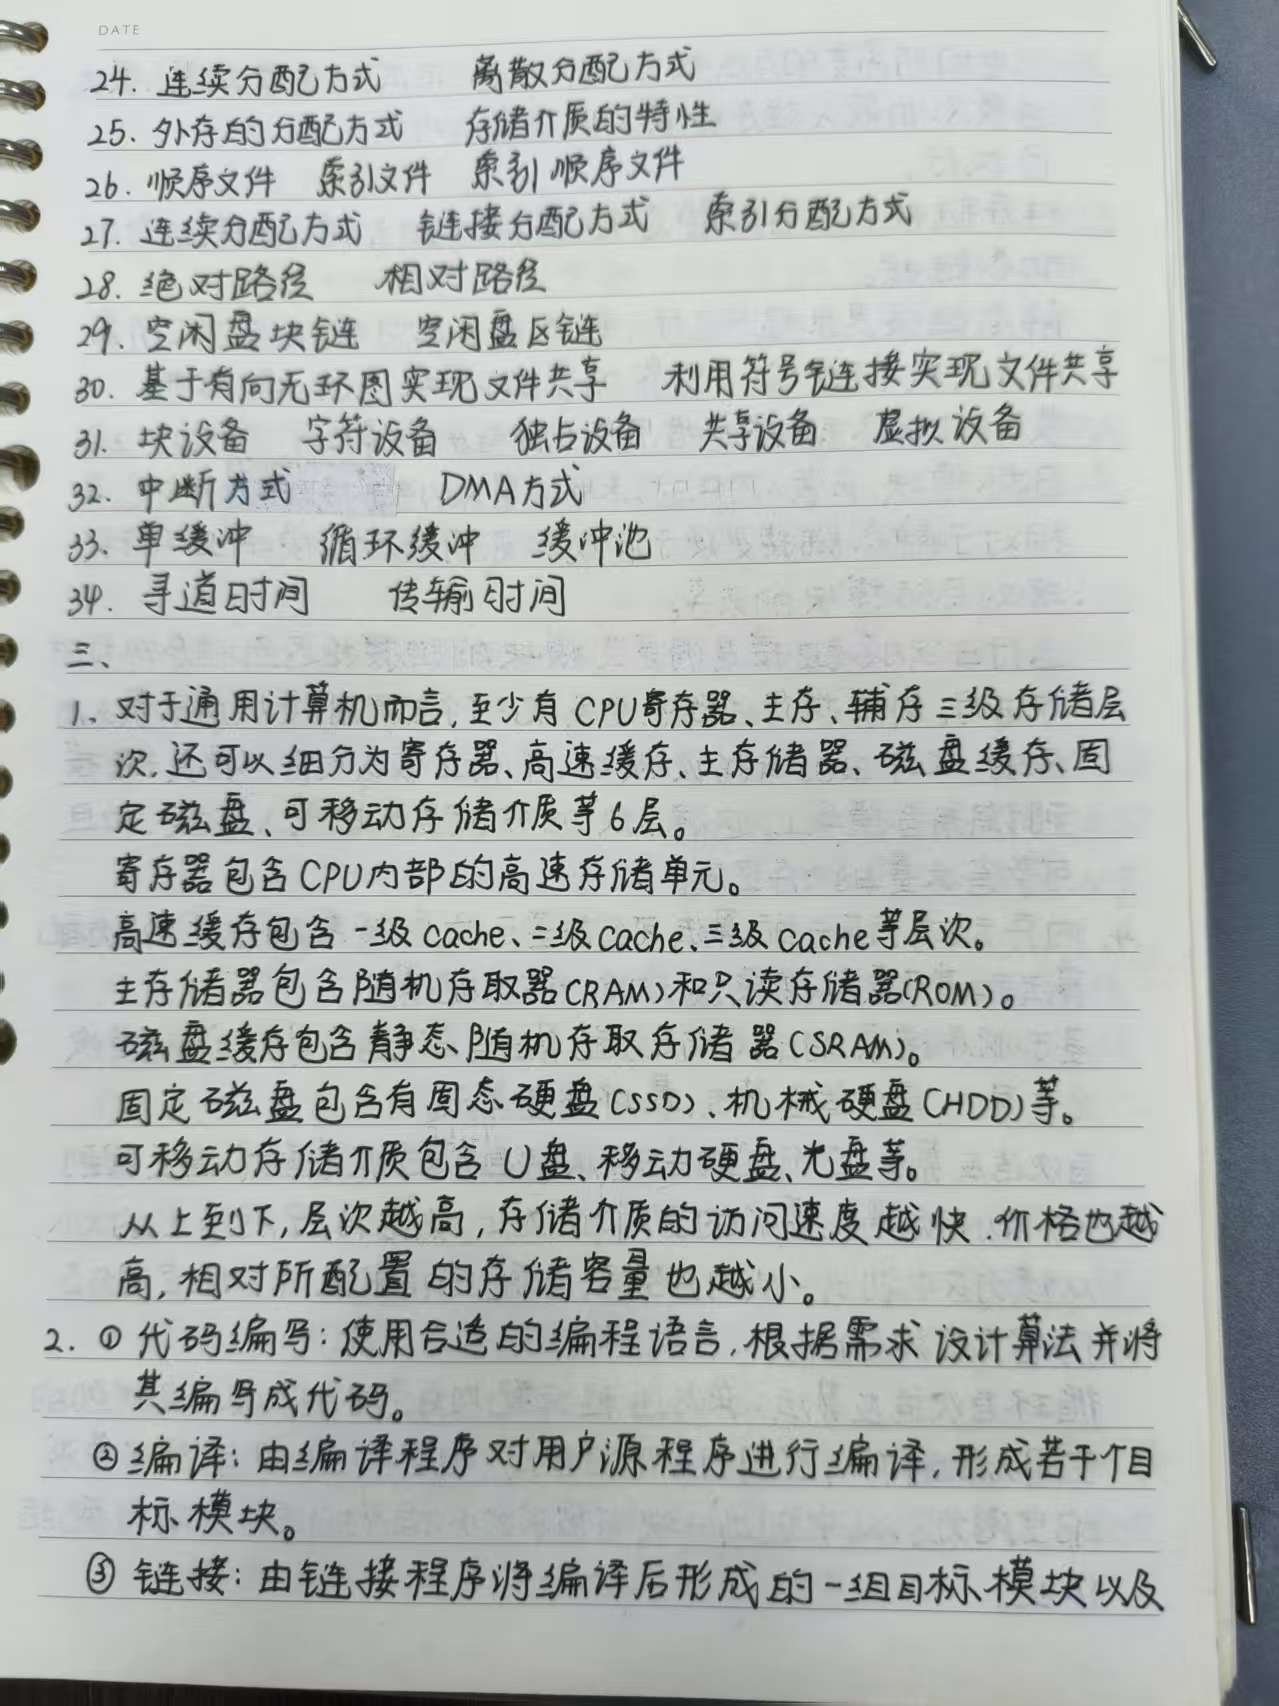 DATE
24. 连续分配方式 离散分配方式
25. 外存的分配方式 存储介质的特性
26. 顺序文件 索引文件 索引顺序文件
27. 连续分配方式 链接分配方式 索引分配方式
28. 绝对路径 相对路径
29. 空闲盘块链 空闲盘区链
30. 基于有向无环图实现文件共享 利用符号链接实现文件共享
31. 块设备 字符设备 独占设备 共享设备 虚拟设备
32. 中断方式 DMA方式
33. 单缓冲 循环缓冲 缓冲池
34. 寻道时间 传输时间
三、
1、对于通用计算机而言,至少有CPU寄存器、主存、辅存三级存储层
次,还可以细分为寄存器、高速缓存、主存储器、磁盘缓存、固
定磁盘、可移动存储介质等6层。
寄存器包含CPU内部的高速存储单元。
高速缓存包含一级cache、二级cache、三级cache等层次。
主存储器包含随机存取器(RAM)和只读存储器(ROM)。
磁盘缓存包含静态随机存取存储器(SRAM)。
固定磁盘包含有固态硬盘(SSD)、机械硬盘(HDD)等。
可移动存储介质包含U盘、移动硬盘、光盘等。
从上到下,层次越高,存储介质的访问速度越快,价格也越
高,相对所配置的存储容量也越小。
2. ①代码编写:使用合适的编程语言,根据需求设计算法并将
其编写成代码。
②编译:由编译程序对用户源程序进行编译,形成若干个目
标模块。
③链接:由链接程序将编译后形成的一组目标模块以及